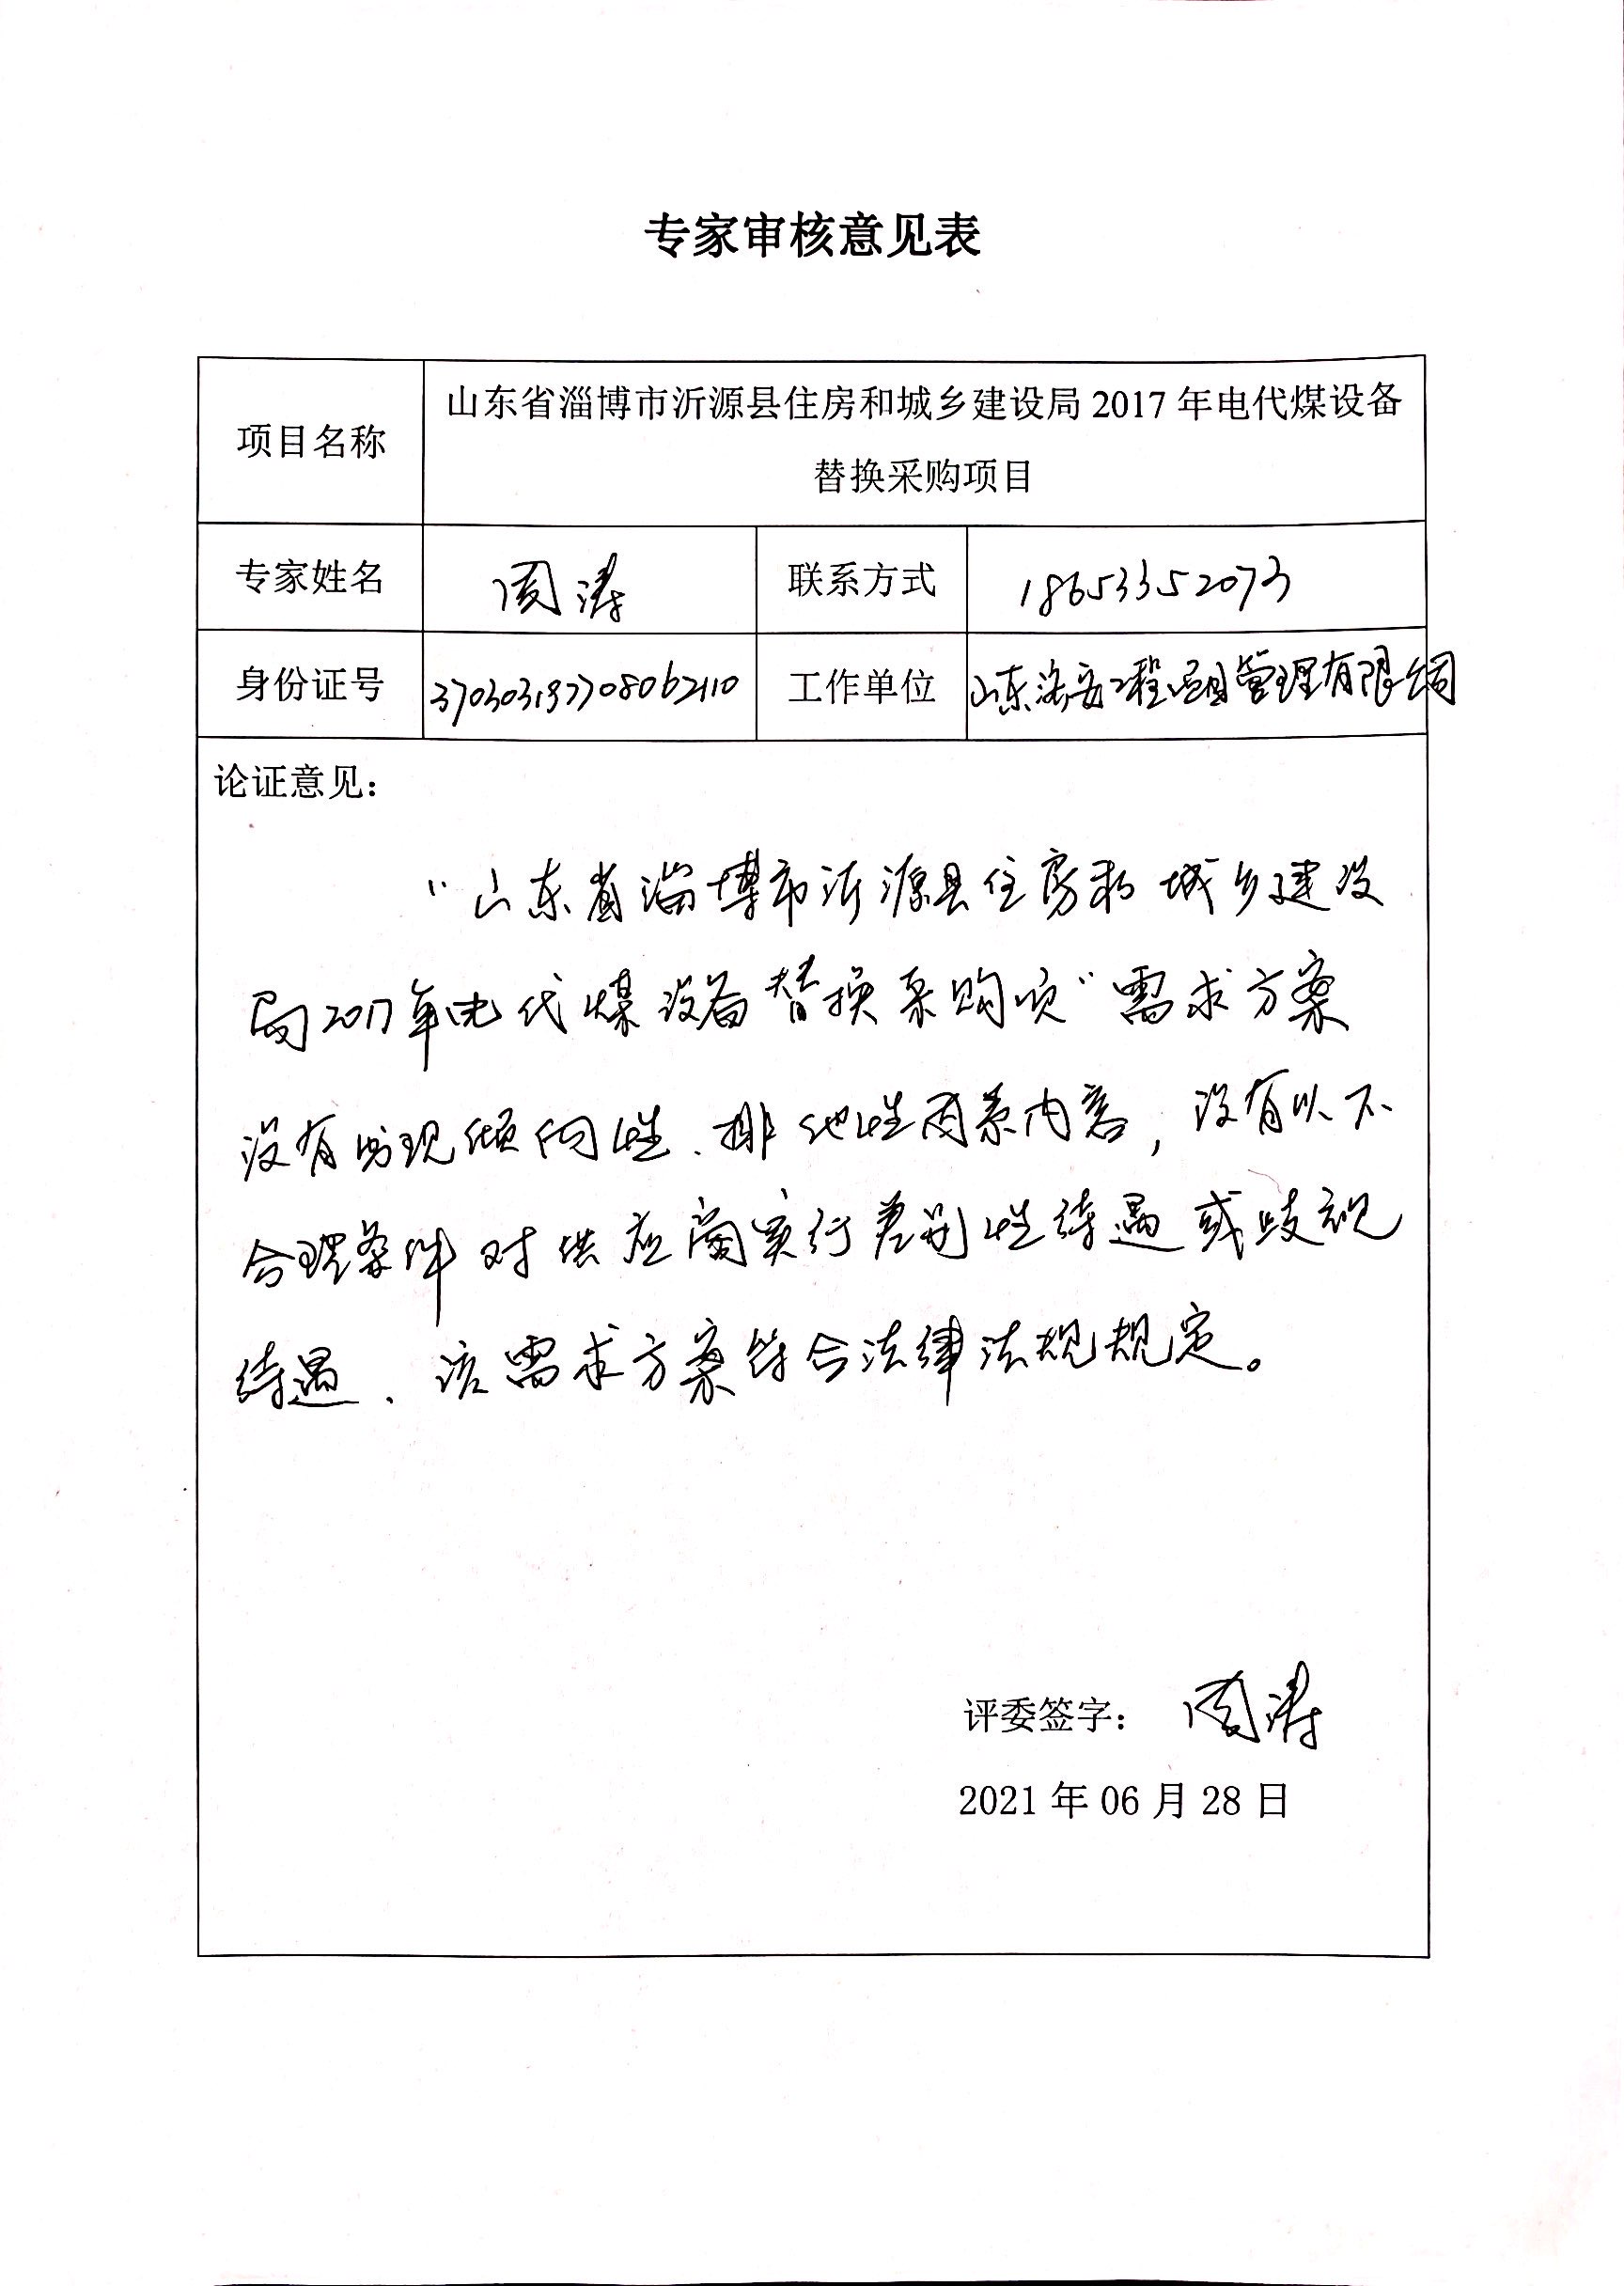 专家审核意见表
项目名称
山东省淄博市沂源县住房和城乡建设局 2017 年电代煤设备
替换采购项目
专家姓名 周涛 联系方式 18653352073
身份证号 370303197708062110 工作单位 山东 工程项目管理有限公司
论证意见：
“山东省淄博市沂源县住房和城乡建设
局2017年电代煤设备替换采购项”需求方案
没有发现倾向性、排他性因素内容，没有以不
合理条件对供应商实行差别性待遇或歧视
待遇、该需求方案符合法律法规规定。
评委签字： 周涛
2021 年 06 月 28 日